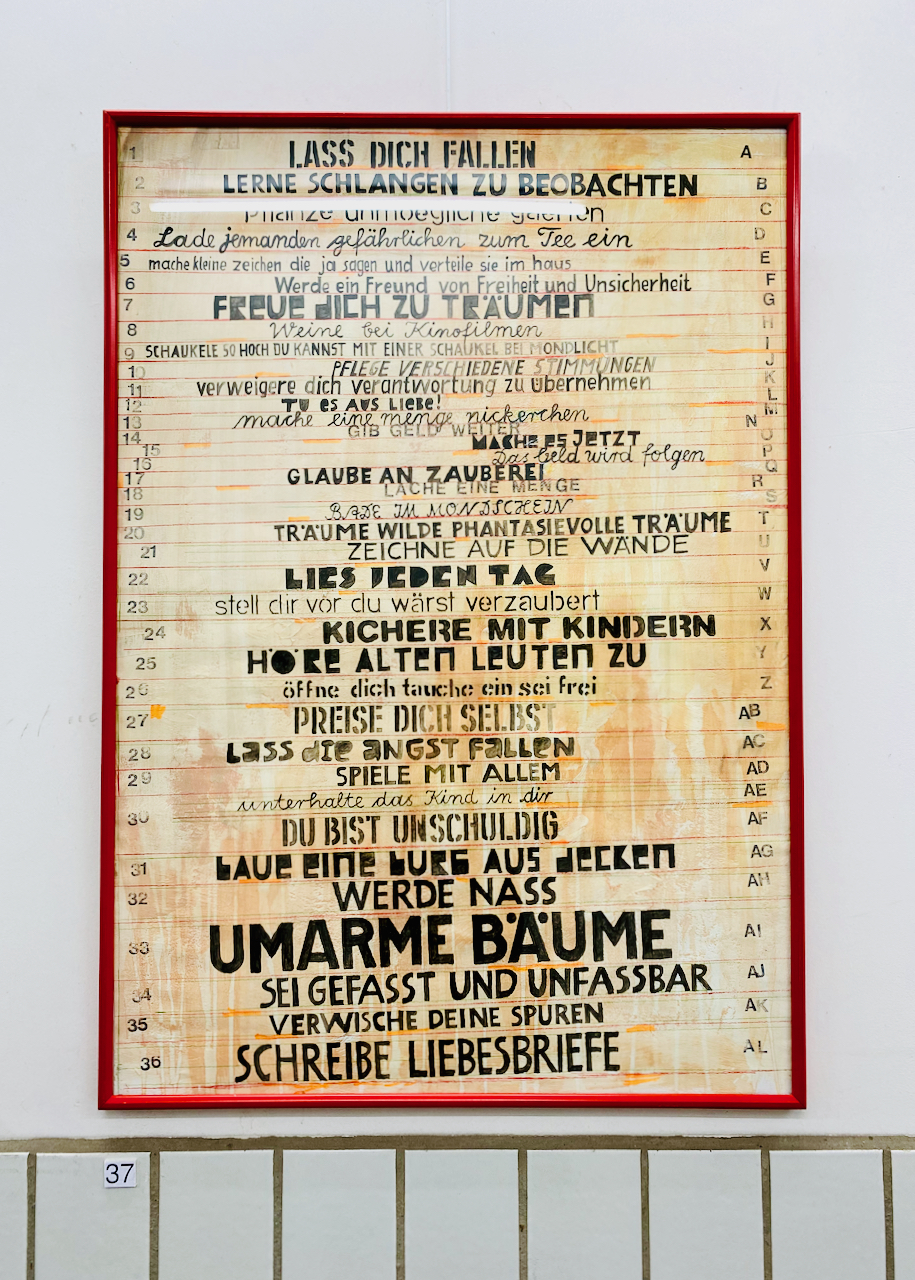 1 LASS DICH FALLEN A
2 LERNE SCHLANGEN ZU BEOBACHTEN B
3 Pflanze unmoegliche gaerten C
4 Lade jemanden gefährlichen zum Tee ein D
5 mache kleine zeichen die ja sagen und verteile sie im haus E
6 Werde ein Freund von Freiheit und Unsicherheit F
7 FREUE DICH ZU TRÄUMEN G
8 Weine bei Kinofilmen H
9 SCHAUKELE SO HOCH DU KANNST MIT EINER SCHAUKEL BEI MONDLICHT I
10 PFLEGE VERSCHIEDENE STIMMUNGEN J
11 verweigere dich verantwortung zu übernehmen K
12 TU es AUS Liebe! L
13 mache eine menge nickerchen M
14 GIB GELD WEITER N
15 MACHE ES JETZT O
16 Das Geld wird folgen P
17 GLAUBE AN ZAUBEREI Q
18 LACHE EINE MENGE R
19 BADE IM MONDSCHEIN S
20 TRÄUME WILDE PHANTASIEVOLLE TRÄUME T
21 ZEICHNE AUF DIE WÄNDE U
22 LIES JEDEN TAG V
23 stell dir vor du wärst verzaubert W
24 KICHERE MIT KINDERN X
25 HÖRE ALTEN LEUTEN ZU Y
26 öffne dich tauche ein sei frei Z
27 PREISE DICH SELBST AB
28 Lass die angst fallen AC
29 SPIELE MIT ALLEM AD
unterhalte das Kind in dir AE
30 DU BIST UNSCHULDIG AF
31 BAUE EINE BURG AUS DECKEN AG
32 WERDE NASS AH
33 UMARME BÄUME AI
34 SEI GEFASST UND UNFASSBAR AJ
35 VERWISCHE DEINE SPUREN AK
36 SCHREIBE LIEBESBRIEFE AL
37